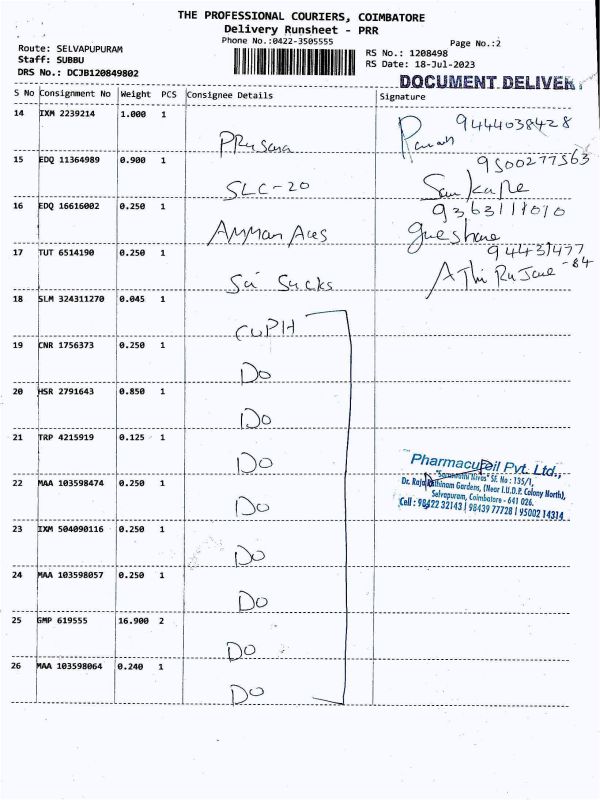 THE PROFESSIONAL COURIERS, COIMBATORE
Delivery Runsheet - PRR
Phone No.:0422-3505555
Page No.:2
Route: SELVAPUPURAM
Staff: SUBBU
DRS No.: DCJB120849802
RS No.: 1208498
RS Date: 18-Jul-2023
DOCUMENT DELIVER
S No Consignment No Weight PCS Consignee Details Signature
14 IXM 2239214 1.000 1 9444038428
15 EDQ 11364989 0.900 1 SLC-20 9500277563
16 EDQ 16616002 0.250 1 9363111010
17 TUT 6514190 0.250 1 94431477
-84
18 SLM 324311270 0.045 1 CUPH
19 CNR 1756373 0.250 1 Do
20 HSR 2791643 0.850 1 Do
21 TRP 4215919 0.125 1 Do
22 MAA 103598474 0.250 1 Do
23 IXM 504090116 0.250 1 Do
24 MAA 103598057 0.250 1 Do
25 GMP 619555 16.900 2 Do
26 MAA 103598064 0.240 1 Do
Pvt. Ltd.,
Nivas" Sf. No : 135/1,
Gardens, (Near I.U.D.P. Colony North),
Selvapuram, Coimbatore - 641 026.
Cell : 98422 32143 | 98439 77728 | 95002 14314